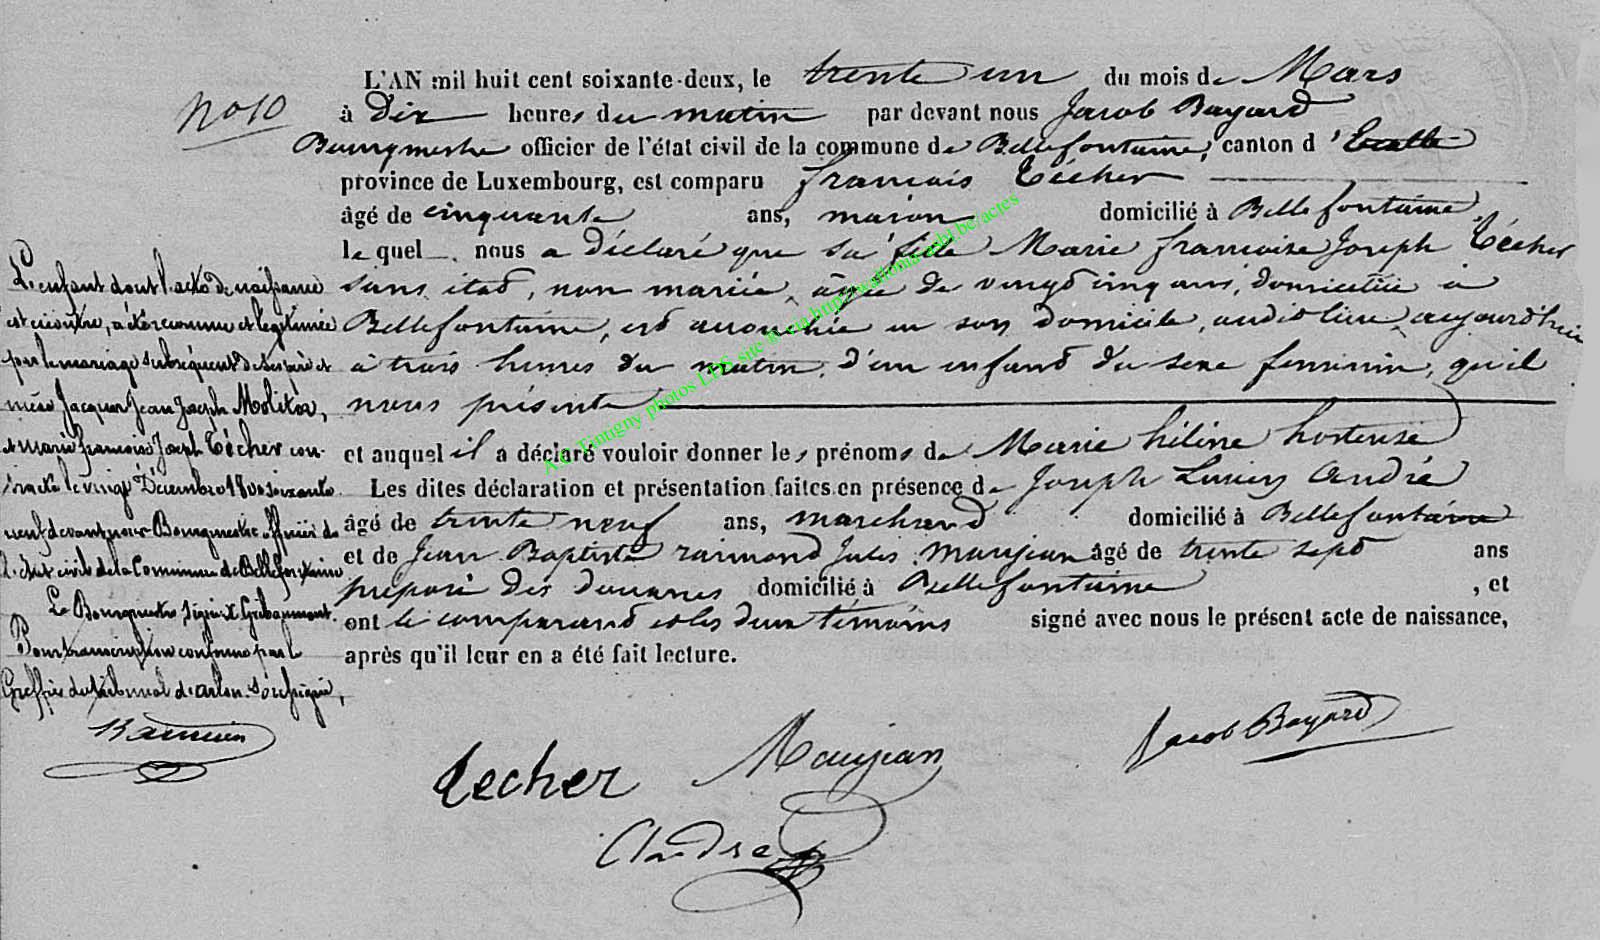 No 10
L'AN mil huit cent soixante-deux, le trente un du mois de Mars
à Dix heures du matin par devant nous Jacob Bayard
Bourgmestre officier de l'état civil de la commune de Bellefontaine, canton d'Etalle
province de Luxembourg, est comparu françois Técher
âgé de cinquante ans, maçon domicilié à Bellefontaine,
le quel nous a déclaré que sa fille Marie françoise Joseph Técher
sans état, non mariée, âgée de vingt cinq ans, domiciliée à
Bellefontaine, est accouchée en son domicile, audit lieu, aujourd'hui
à trois heures du matin, d'un enfant du sexe feminin, qu'il
nous présente
et auquel il a déclaré vouloir donner les prénoms de Marie hélène hortense
Les dites déclaration et présentation faites en présence de Joseph Lucien André
âgé de trente neuf ans, marchand domicilié à Bellefontaine
et de Jean Baptiste raimond Jules Maujean âgé de trente sept ans
préposé des douanes domicilié à Bellefontaine, et
ont le comparant et les deux témoins signé avec nous le présent acte de naissance,
après qu'il leur en a été fait lecture.
L'enfant dont l'acte de naissance
est ci contre, a été reconnue et legitimée
par le mariage subséquent de ses père et
mère Jacques Jean Joseph Molitor,
et marie françoise Joseph Técher con-
tracté le vingt Décembre 1800 soixante
neuf devant nous Bourgmestre officier de
l'état civil de la Commune de Bellefontaine
Le Bourgmestre, signé
Pour transcription conforme par le
Greffier du tribunal d'arlon soussigné,
Jacob Bayard
Maujean
Techer
André
Ac. Tintigny photos LDS site-it via http://wallonia-asbl.be/actes